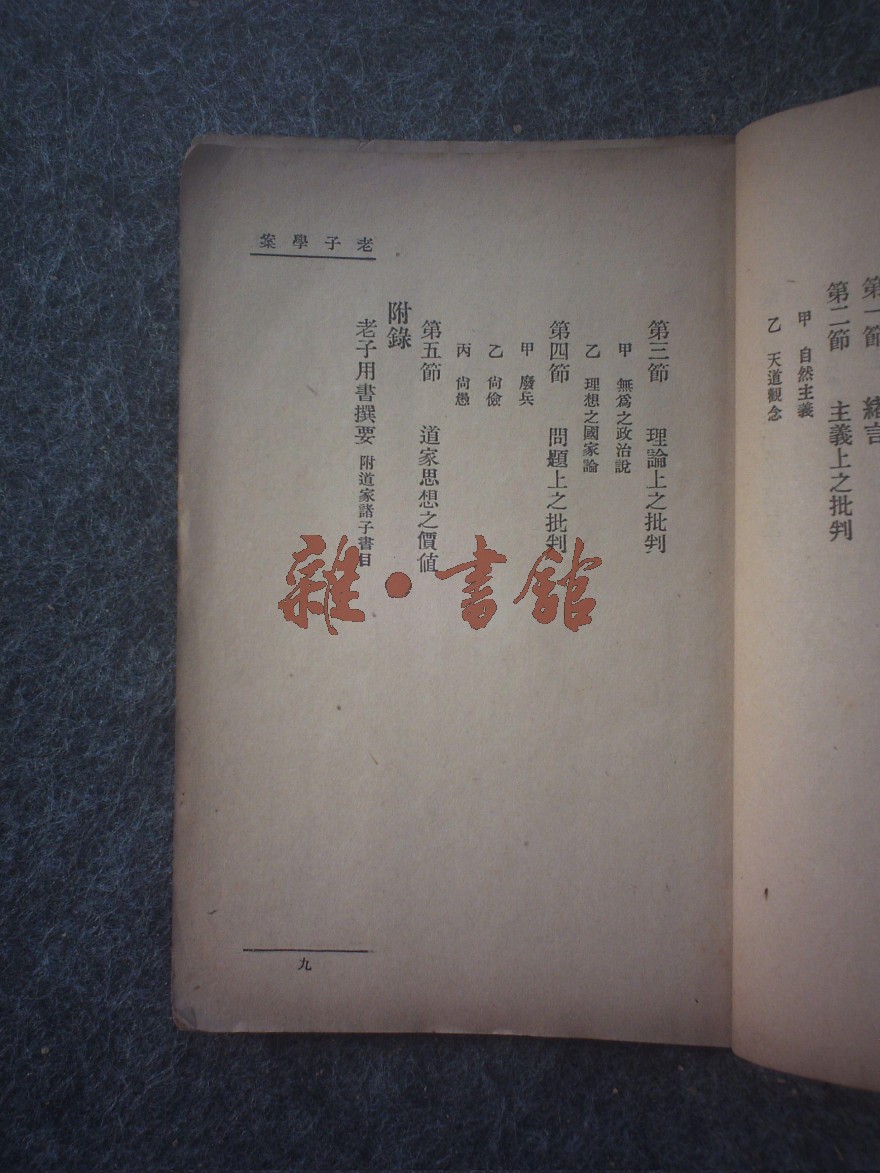 第一節　緒言
第二節　主義上之批判
甲　自然主義
乙　天道觀念
老子學案
第三節　理論上之批判
甲　無爲之政治說
乙　理想之國家論
第四節　問題上之批判
甲　廢兵
乙　尙儉
丙　尙愚
第五節　道家思想之價値
附錄
老子用書撰要　附道家諸子書目
九
雜・書館